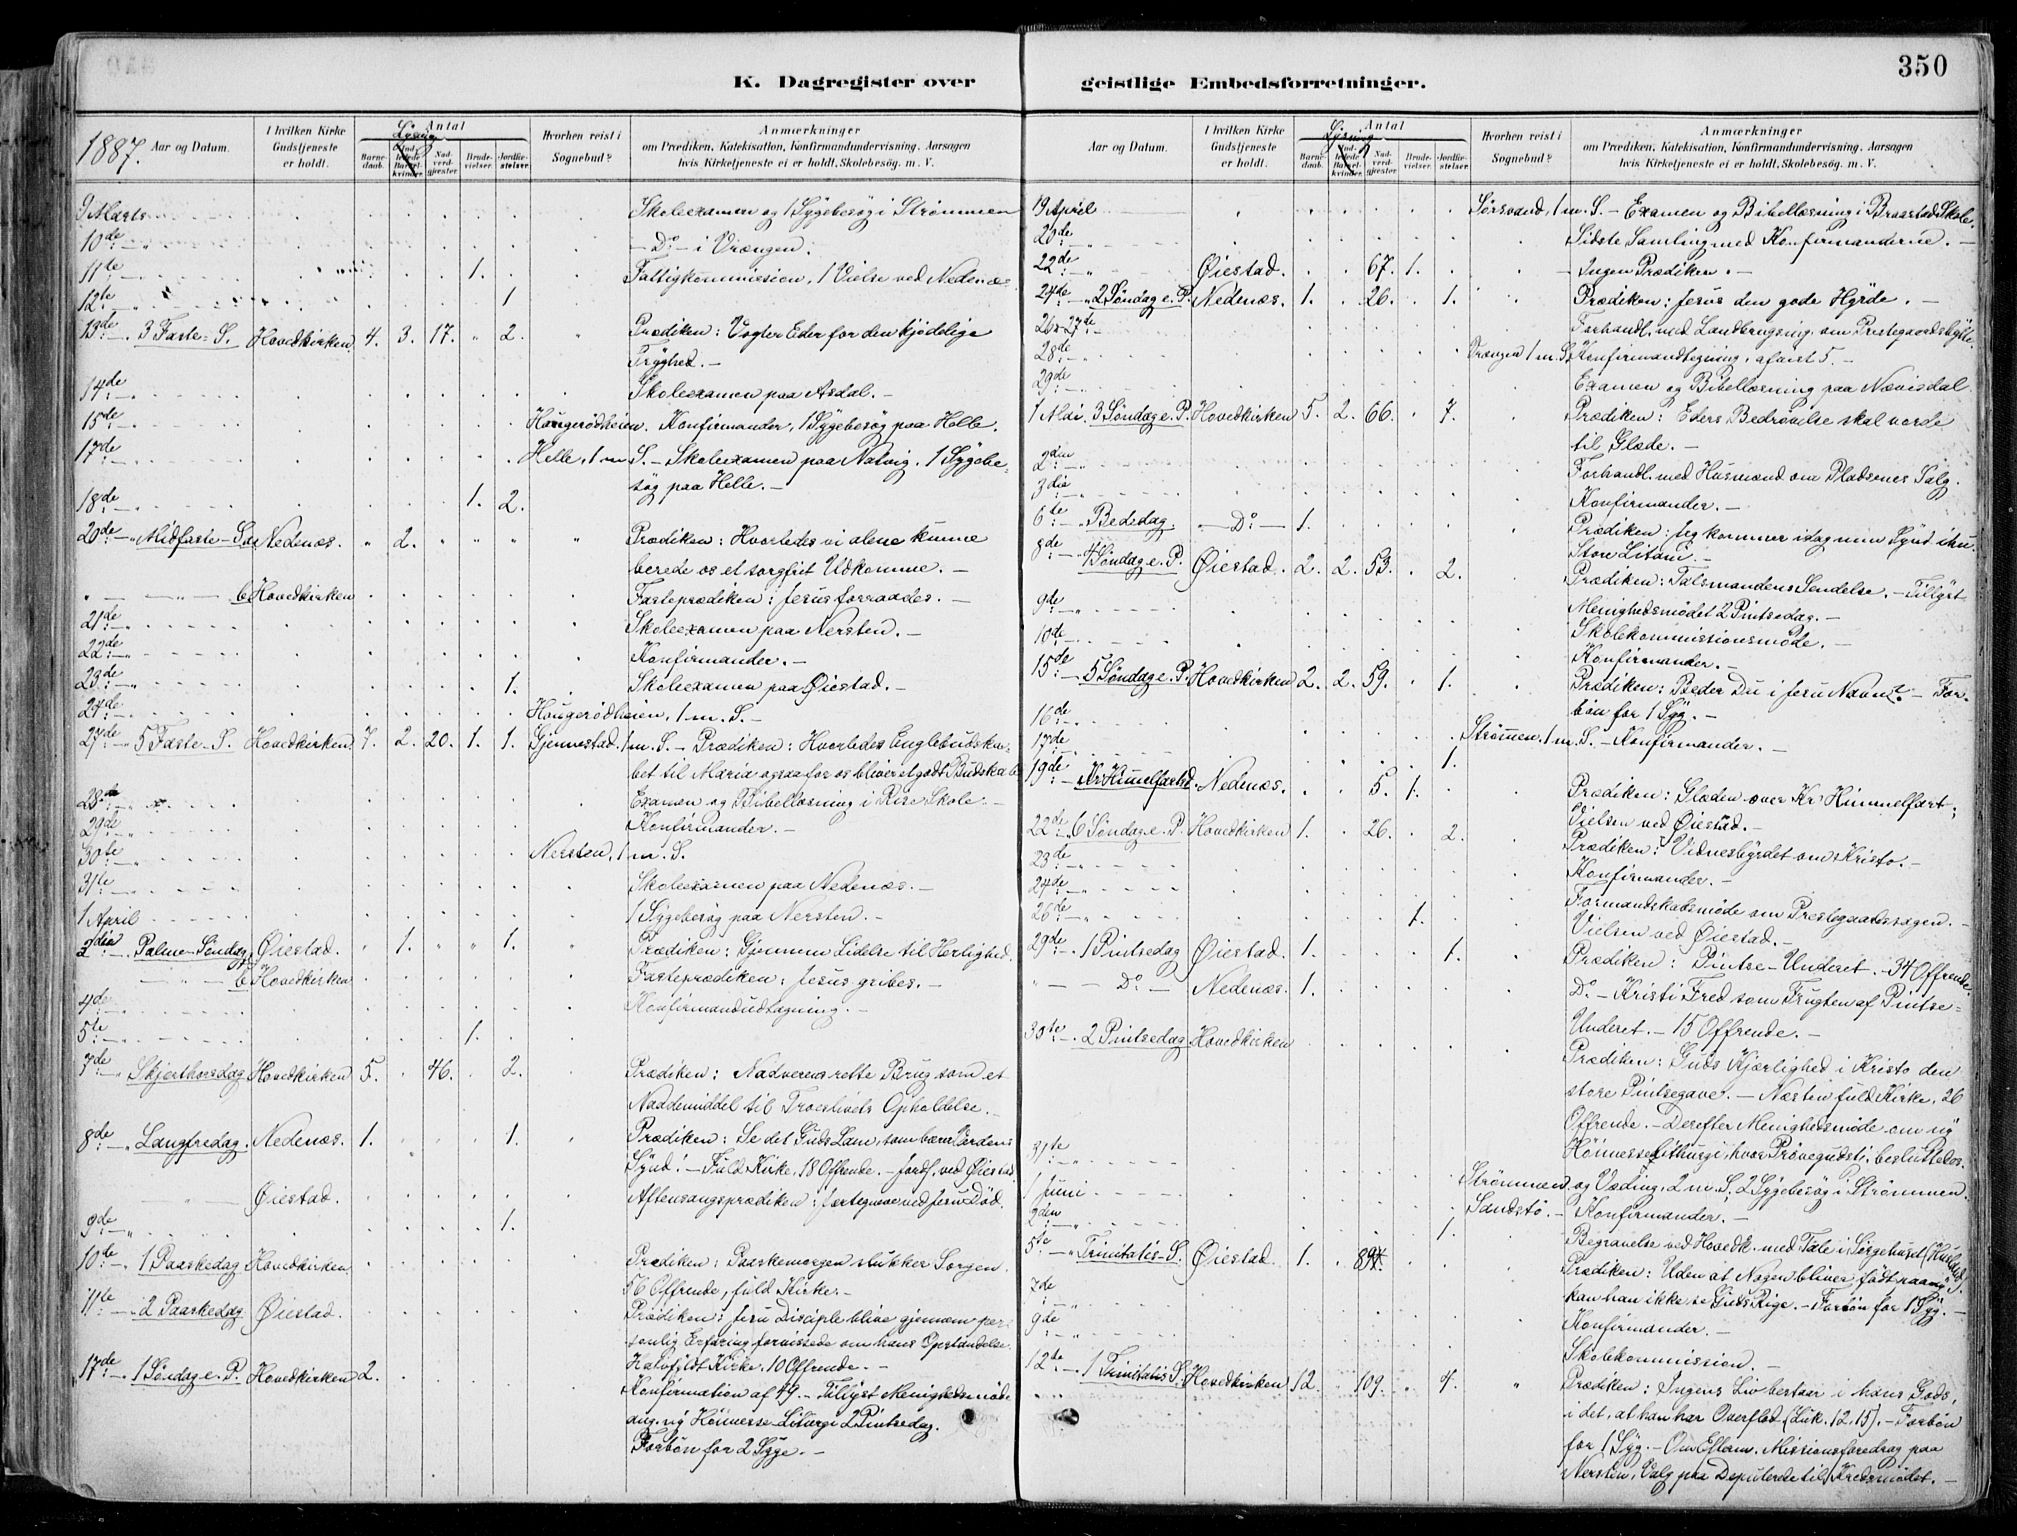 350
K. Dagregister over geistlige Embedsforretninger.
1887.
Aar og Datum.
I hvilken Kirke Gudstjeneste er holdt.
Antal
Barnedaab.
Indledede Barselkvinder.
Nadverdgjæster.
Brudevielser.
Jordfæstelser.
Hvorhen reist i Sognebud?
Anmærkninger
om Prædiken, Katekisation, Konfirmandundervisning. Aarsagen
hvis Kirketjeneste ei er holdt. Skolebesøg. m. V.
9 Marts Skoleexamen og 1 Sygebesøg i Strømmen
10de — Do — i Vrængen.
11te 1. Fattigkommission, 1 Vielse ved Nedenæs
12te 1
13de 3 Faste-S. Hovedkirken 4. 3. 17. " 2. Prædiken: Vogter Eder for den kjødelige
Tryghed. —
14de Skoleexamen paa Asdal. —
15de Haugerødheien. Konfirmander, 1 Sygebesøg paa Helle.
17de Helle, 1 m. S. — Skoleexamen paa Natvig. 1 Sygebe-
søg paa Helle. —
18de 1. 2.
20de Midfaste-S. Nedenæs. " 2. " " " Prædiken: Hvorledes vi alene kunne
berede os et sorgfrit Udkomme. —
" — " — Hovedkirken Fasteprædiken: Jesus forraades. —
21de Skoleexamen paa Nersten. —
22de Konfirmander. —
23de 1. Skoleexamen paa Øiestad. —
24de Haugerødheien, 1 m. S. —
27de 5 Faste-S. Hovedkirken 7. 2. 20. 1. 1. Gjennestad, 1 m. S. — Prædiken: Hvorledes Englebudska-
bet til Maria ogsaa for os bliver et godt Budskab
28de Examen og Bibellæsning i Rise Skole. —
29de Konfirmander. —
30te Nersten, 1 m. S.
31te Skoleexamen paa Nedenæs. —
1 April 1 Sygebesøg paa Nersten. —
3die Palme-Søndag Øiestad. " 1. " " 1. Prædiken: Gjennem Lidelse til Herlighed.
Hovedkirken Fasteprædiken: Jesus gribes. —
4de Konfirmandudtagning. —
5te 1.
7de Skjærthorsdag Hovedkirken 5. 46. 2. Prædiken: Nadverens rette Brug som et
Naademiddel til Troeslivets Opholdelse. —
8de Langfredag. Nedenæs. 1. 1. Prædiken: Se det Guds Lam, som bærer Verdens
Synd! — Fuld Kirke, 18 Offrende. — Jordf. ved Øiestad.
Øiestad. Aftensangsprædiken: Jærtegnene ved Jesu Død.
9de 1.
10de 1 Paaskedag Hovedkirken Prædiken: Paaskemorgen slukker Sorgen.
56 Offrende, fuld Kirke. —
11te 2 Paaskedag Øiestad. Prædiken: Jesu Disciple blive gjennem per-
sonlig Erfaring forvissede om hans Opstandelse.
Halvfyldt Kirke. 10 Offrende. —
17de 1 Søndag e. P. Hovedkirken 2. Konfirmation af 49 — Tillyst Menighedsmøde
ang. ny Høimesse-Liturgi 2 Pintsedag.
Forbøn for 2 Syge. —
Aar og Datum.
I hvilken Kirke Gudstjeneste er holdt.
Antal
Barnedaab.
Indledede Barselkvinder.
Nadverdgjæster.
Brudevielser.
Jordfæstelser.
Hvorhen reist i Sognebud?
Anmærkninger
om Prædiken, Katekisation, Konfirmandundervisning. Aarsagen
hvis Kirketjeneste ei er holdt. Skolebesøg. m. V.
19 April Sørsvand, 1 m. S. — Examen og Bibellæsning i Braastad Skole.
20de Sidste Samling med Konfirmanderne. —
22de Øiestad. 67. 1. Ingen Prædiken. —
24de 2 Søndag e. P. Nedenæs. 1. 26. 1. Prædiken: Jesus den gode Hyrde. —
26-27de Forhandl. med Landbrugsing. om Prestegaardsbytte.
28de Vrængen 1 m. S. Konfirmandtegning, afvist 5. —
29de Examen og Bibellæsning paa Nævisdal
1 Mai 3 Søndag e. P. Hovedkirken 5. 2. 66. 7. Prædiken: Eders Bedrøvelse skal vorde
til Glæde. —
2den Forhandl. med Husmænd om Pladsenes Salg.
3die Konfirmander. —
6te Bededag. — Do — 1. Prædiken: Jeg kommer idag min Synd ihu.
Store Litani. —
8de 4 Søndag e. P. Øiestad. 2. 2. 53. 2. Prædiken: Talsmandens Sendelse. — Tillyst
Menighedsmødet 2 Pintsedag. —
9de Skolekommissionsmøde. —
10de Konfirmander. —
15de 5 Søndag e. P. Hovedkirken 2. 2. 59. 1. Prædiken: Beder Du i Jesu Navn? — For-
bøn for 1 Syg. —
16de
17de Strømmen, 1 m. S. — Konfirmander. —
1.
19de Kr. Himmelfartsd. Nedenæs. 5. 1. Prædiken: Glæden over Kr. Himmelfart;
Vielsen ved Øiestad. —
22de 6 Søndag e. P. Hovedkirken 1. 26. 2. Prædiken: Vidnesbyrdet om Kristo. —
23de Konfirmander. —
24de Formandskabsmøde om Prestegaardssagen. —
26de 1. Vielsen ved Øiestad. —
29de 1 Pintsedag Øiestad. 1. 1. Prædiken: Pintse-Underet. — 34 Offrende.
— Do — Nedenæs. 1. Do — Kristi Fred som Frugten af Pintse-
Underet. — 15 Offrende. —
30te 2 Pintsedag Hovedkirken Prædiken: Guds Kjærlighed i Kristo den
store Pintsegave. — Næsten fuld Kirke, 26
Offrende. — Derefter Menighedsmøde om ny
Høimesselithurgi, hvor Prøvegudstj. besluttedes.
31te Strømmen og Væding, 2 m. S. 2 Sygebesøg i Strømmen.
1 Juni Sandstø. — Konfirmander. —
2den 1. Begravelse ved Hovedk. med Tale i Sørgehuset
5te Trinitatis-S. Øiestad. 1. Prædiken: Uden at Nogen bliver født paany
kan han ikke se Guds Rige. — Forbøn for 1 Syg. —
7de Konfirmander. —
9de Skolekommission. —
12te 1 Trinitatis S. Hovedkirken 12. 109. " 4. " Prædiken: Ingens Liv bestaar i hans Gods,
i det, at han har Overflod (Luk. 12, 15). — Forbøn
for 1 Syg. — Om Efterm. Missionsforedrag paa
Nersten, Valg paa Deputerede til Kredsmødet. —